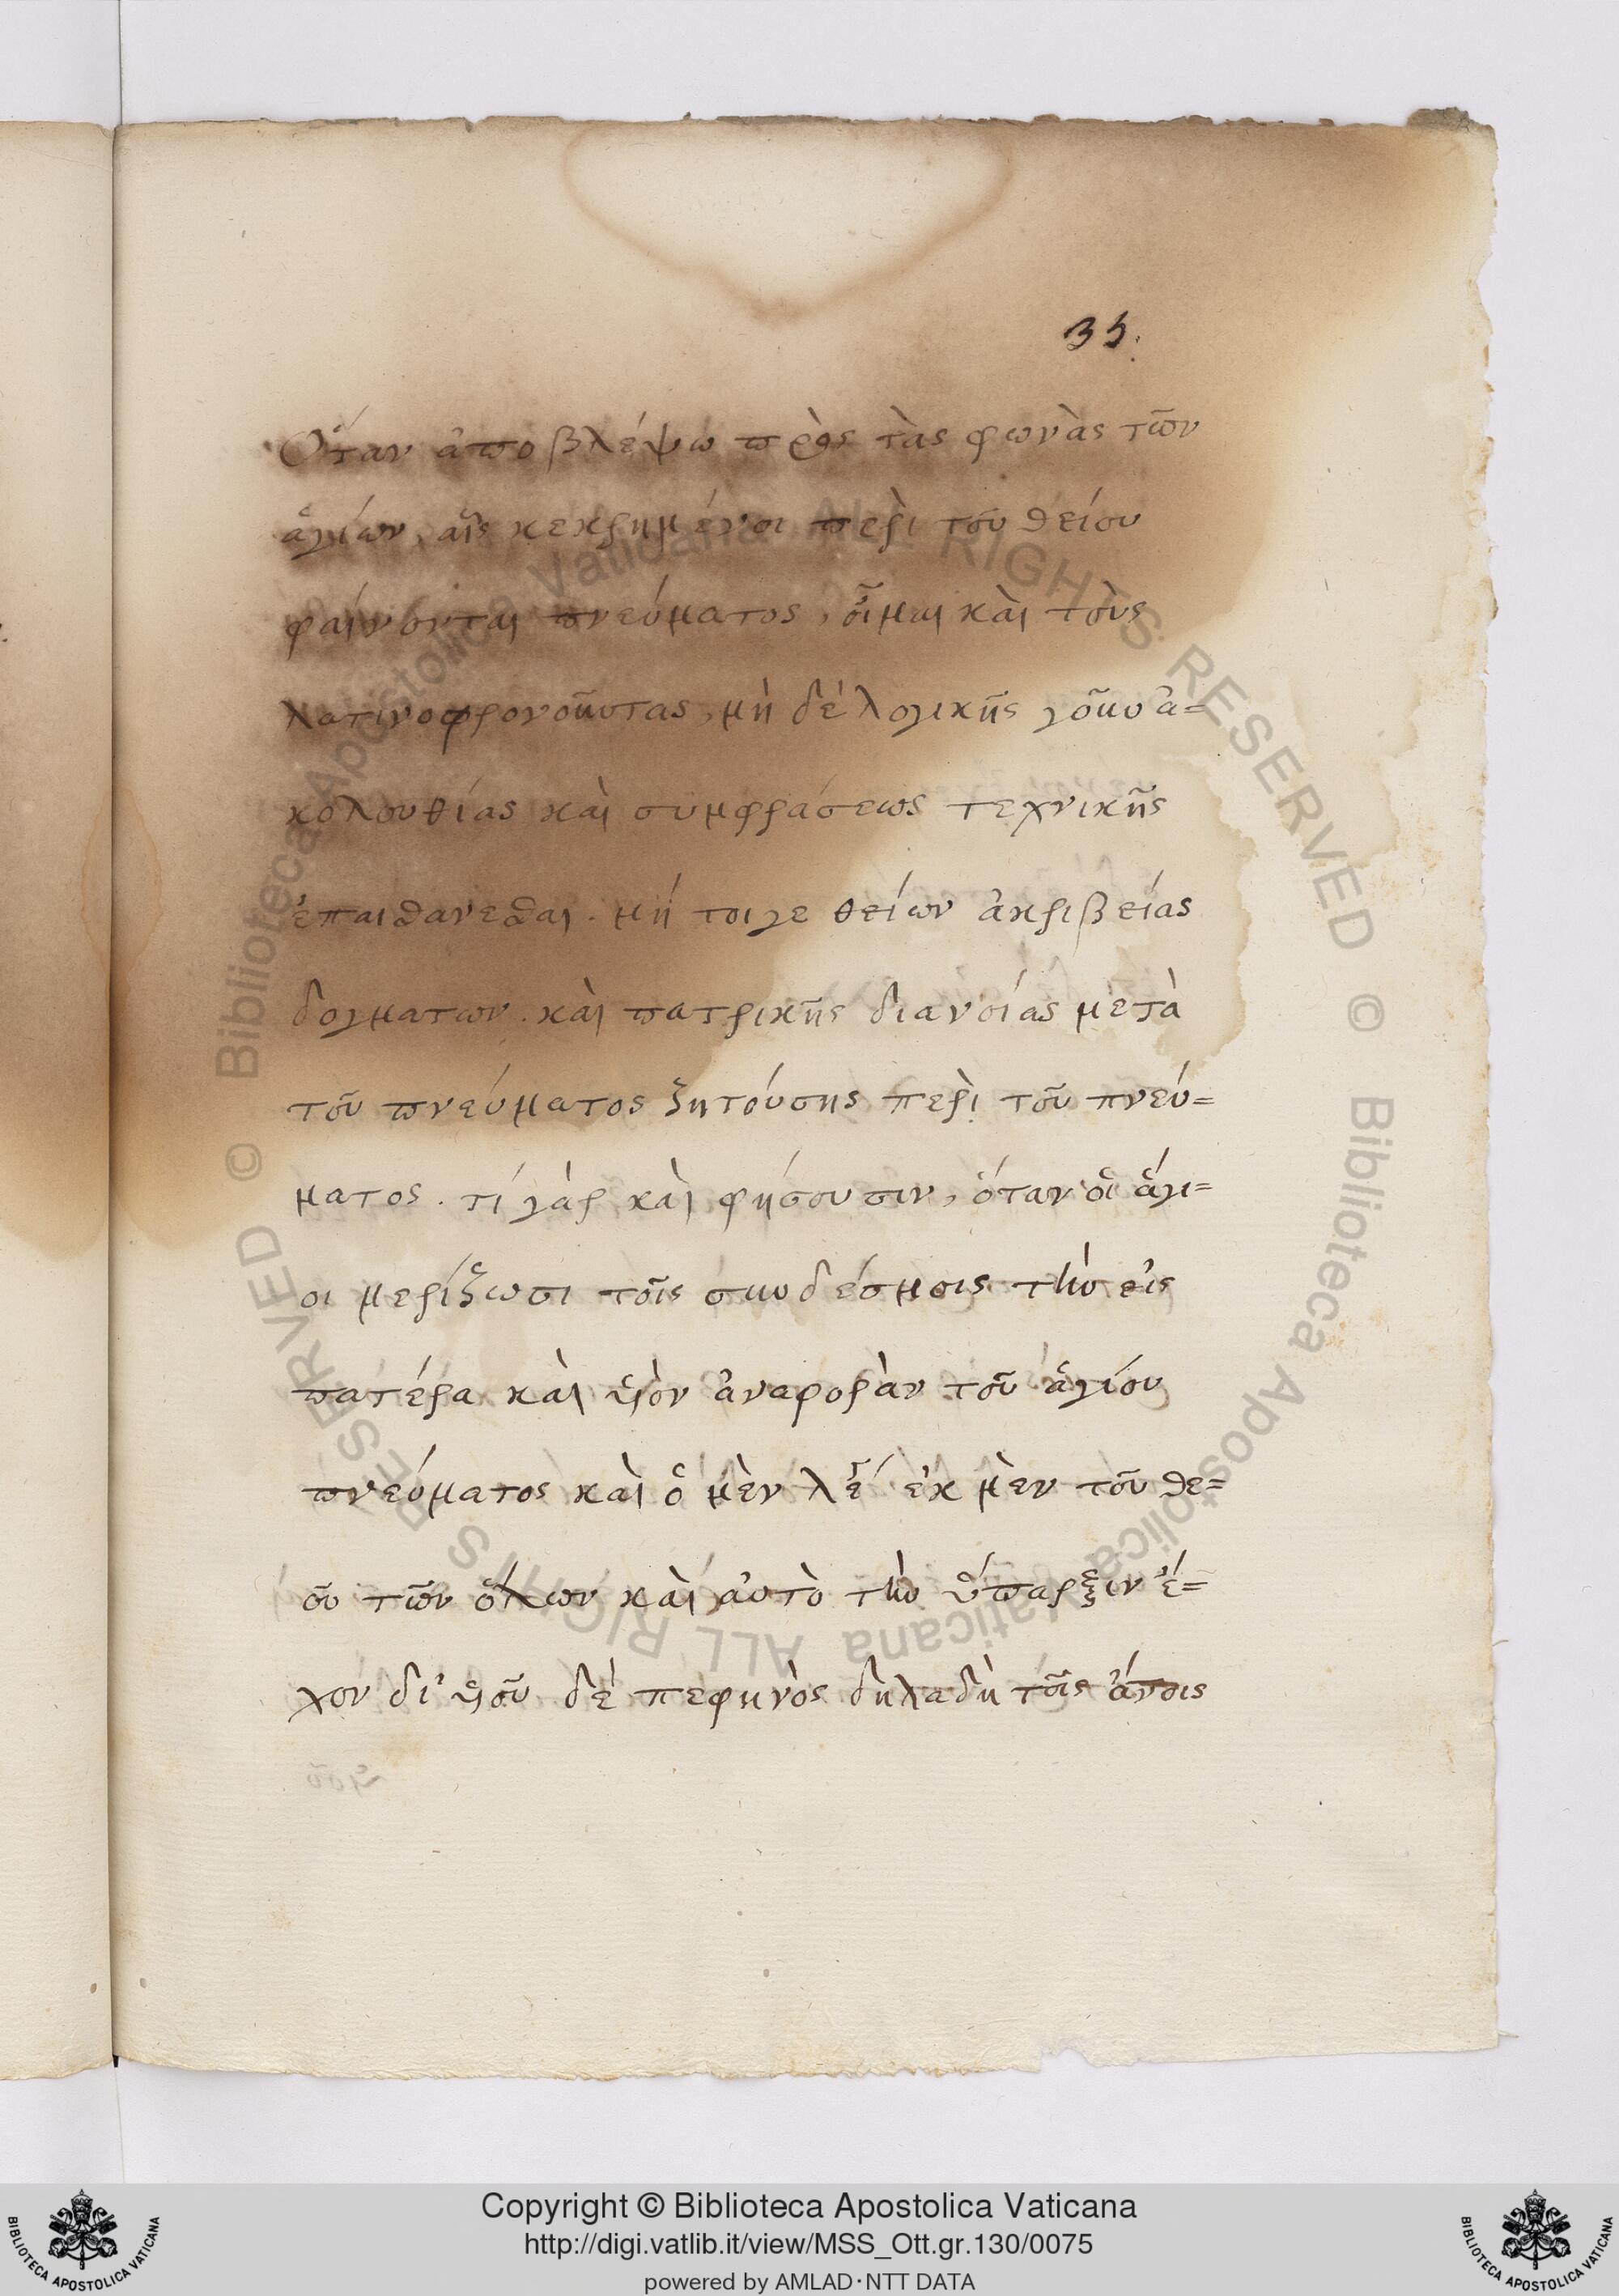 35.
Ὅταν ἀποβλέψω πρὸς τὰς φωνὰς τῶν
ἁγίων, αἷς κεχρημένοι περὶ τοῦ θείου
φαίνονται πνεύματος, οἶμαι καὶ τοὺς
λατινοφρονοῦντας, μὴ δὲ λογικῆς γοῦν ἀ=
κολουθίας καὶ συμφράσεως τεχνικῆς
ἐπαισθάνεσθαι. μή τοιγε θείων ἀκριβείας
δογμάτων. καὶ πατρικῆς διανοίας μετὰ
τοῦ πνεύματος ζητούσης περὶ τοῦ πνεύ=
ματος. τί γὰρ καὶ φήσουσιν, ὅταν οἱ ἅγι=
οι μερίζωσι τοῖς συνδέσμοις τὴν εἰς
πατέρα καὶ υἱὸν ἀναφορὰν τοῦ ἁγίου
πνεύματος καὶ ὁ μὲν λέγει ἐκ μὲν τοῦ θε=
οῦ τῶν ὅλων καὶ αὐτὸ τὴν ὕπαρξιν ἔ=
χον δι' υἱοῦ δὲ πεφηνὸς δηλαδὴ τοῖς ἀνοις
Copyright © Biblioteca Apostolica Vaticana
http://digi.vatlib.it/view/MSS_Ott.gr.130/0075
powered by AMLAD·NTT DATA
BIBLIOTECA APOSTOLICA VATICANA
BIBLIOTECA APOSTOLICA VATICANA
© Biblioteca Apostolica Vaticana ALL RIGHTS RESERVED
© Biblioteca Apostolica Vaticana ALL RIGHTS RESERVED